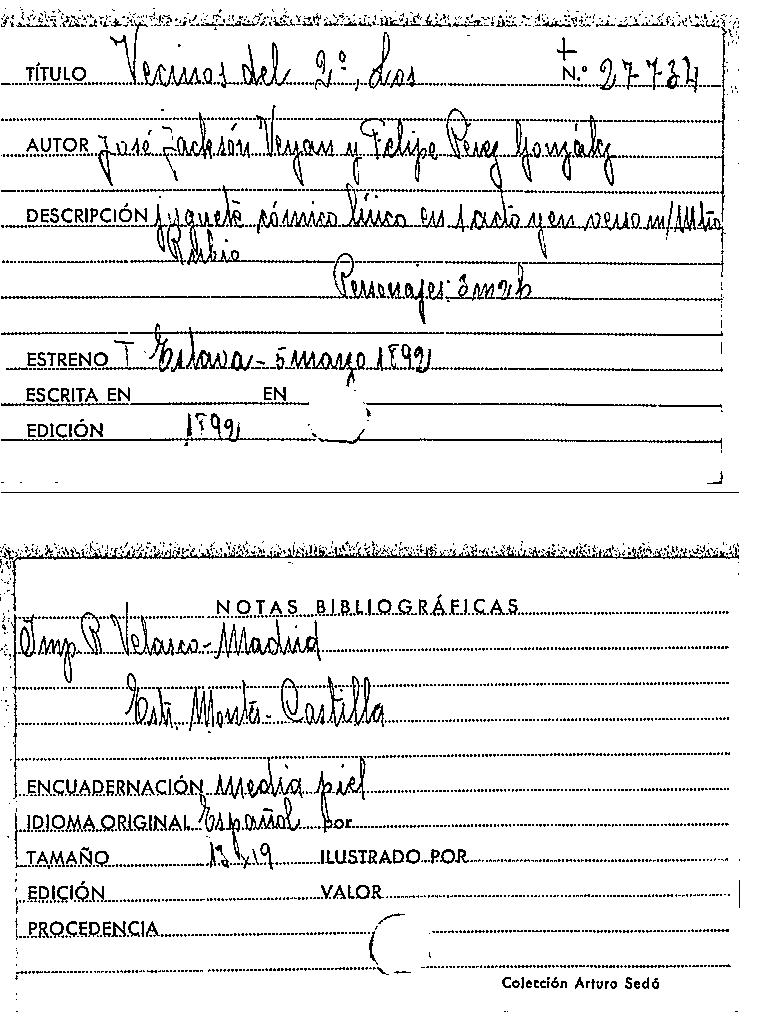 TÍTULO Vecinos del 2º, Los + N.º 27734
AUTOR José Jackson Veyan y Felipe Pérez González
DESCRIPCIÓN juguete cómico lírico en 1 acto y en verso m/ Mtro
Rubio
Personajes: 3m2h
ESTRENO T Eslava - 5 marzo 1892
ESCRITA EN EN
EDICIÓN 1892
NOTAS BIBLIOGRÁFICAS
Imp R Velasco - Madrid
Estr. Montes - Castilla
ENCUADERNACIÓN media piel
IDIOMA ORIGINAL Español por
TAMAÑO 13x19 ILUSTRADO POR
EDICIÓN VALOR
PROCEDENCIA
Colección Arturo Sedó